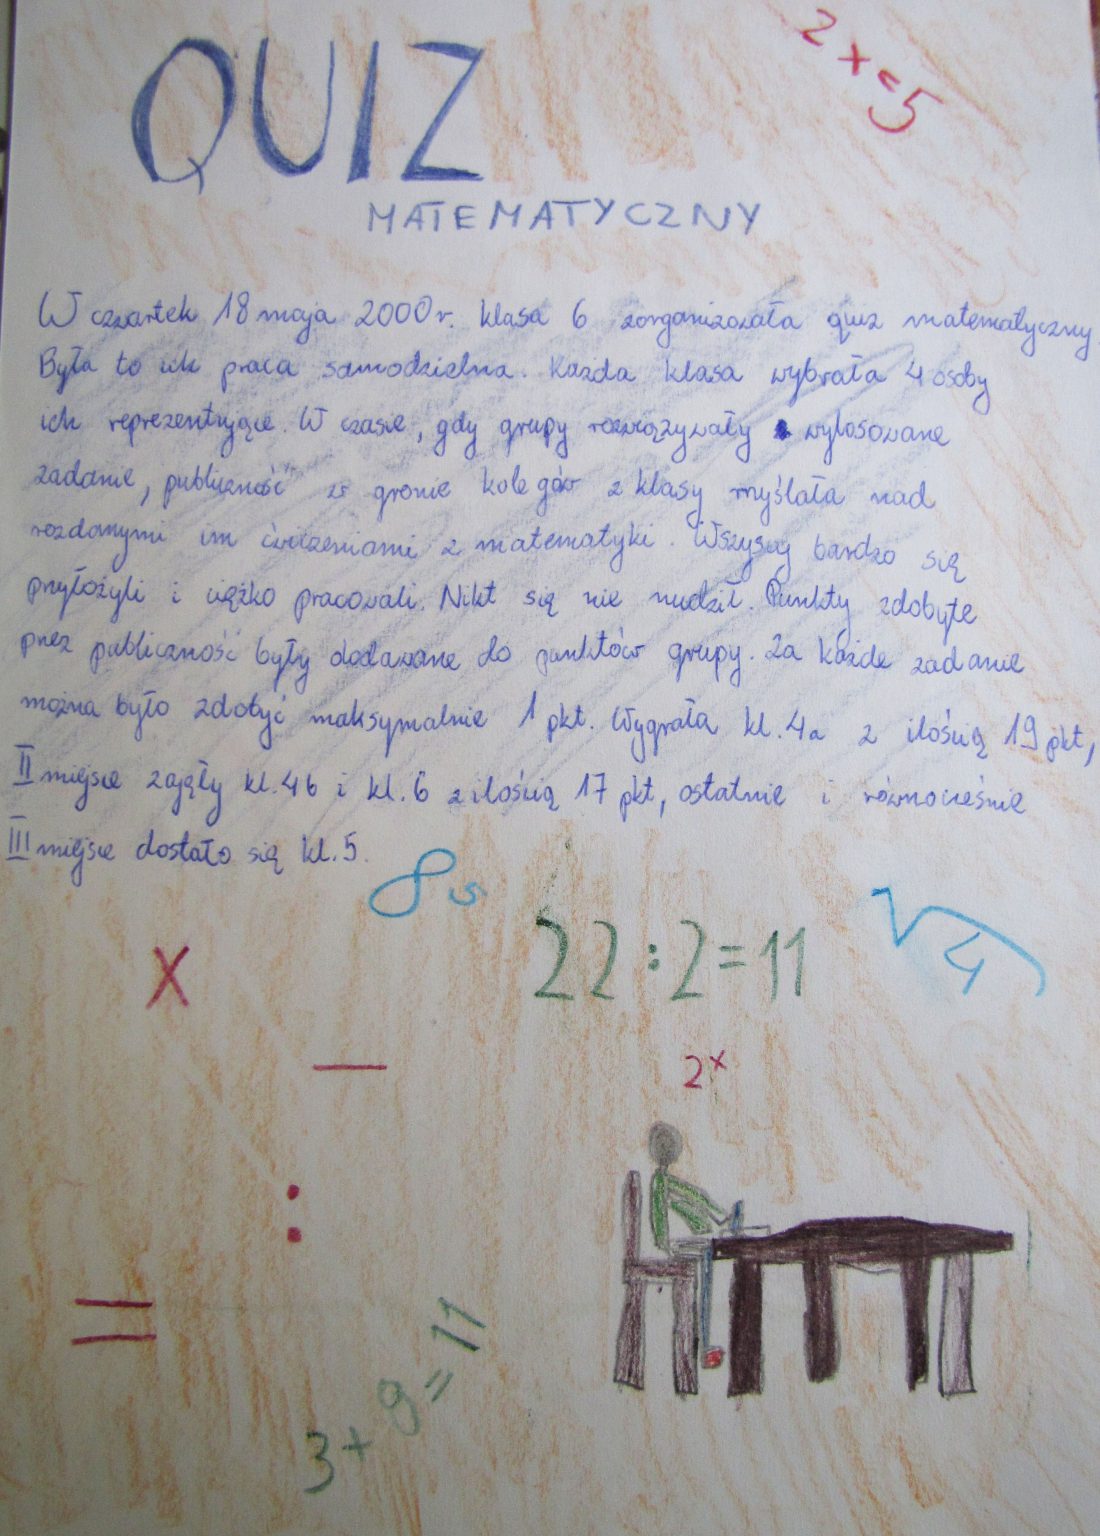 QUIZ
2x=5
MATEMATYCZNY
W czwartek 18 maja 2000r. klasa 6 zorganizowała quiz matematyczny.
Była to ich praca samodzielna. Każda klasa wybrała 4 osoby
ich reprezentujące. W czasie, gdy grupy rozwiązywały wylosowane
zadanie, publiczność w gronie kolegów z klasy myślała nad
rozdanymi im ćwiczeniami z matematyki. Wszyscy bardzo się
przyłożyli i ciężko pracowali. Nikt się nie nudził. Punkty zdobyte
przez publiczność były dodawane do punktów grupy. Za każde zadanie
można było zdobyć maksymalnie 1 pkt. Wygrała kl. 4a z ilością 19 pkt,
II miejsce zajęły kl. 4b i kl. 6 z ilością 17 pkt, ostatnie i równocześnie
III miejsce dostało się kl. 5.
8
22:2=11
√4
x
—
2ˣ
:
=
3+9=11